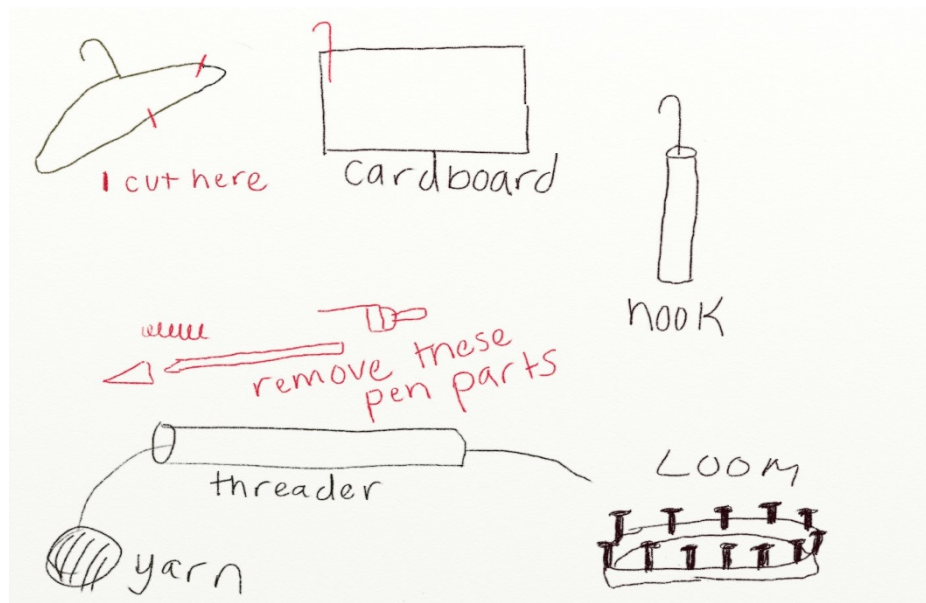 I cut here
cardboard
hook
remove these
pen parts
threader
yarn
LOOM